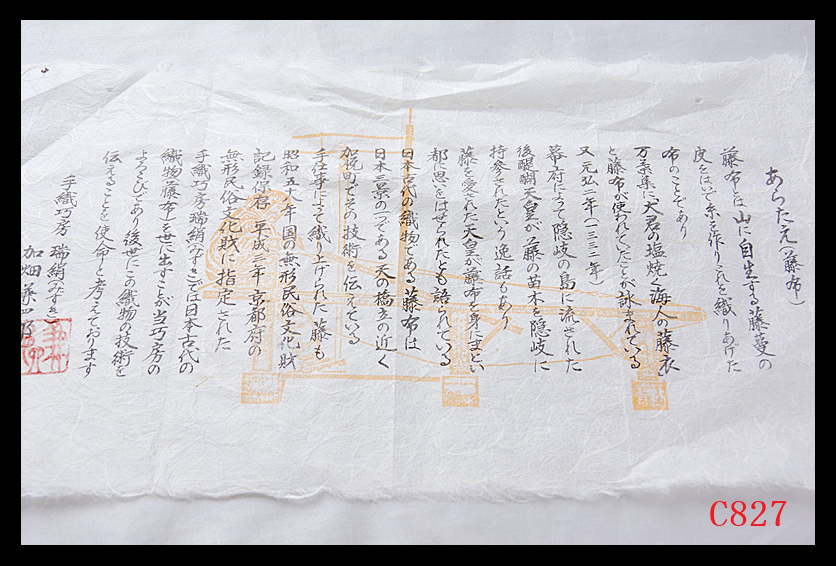 あらたえ(藤布)
藤布は山に自生する藤蔓の
皮をはいで糸を作りこれを織りあげた
布のことであり
万葉集に「大君の塩焼く海人の藤衣」
と藤布が使われていたことが詠まれている
又元弘二年(一三三二年)
幕府によって隠岐の島に流された
後醍醐天皇が藤の苗木を隠岐に
持参されたという逸話もあり
藤を愛された天皇が藤布を身にまとい
都に思いをはせられたとも語られている
日本古代の織物である藤布は
日本三景の一つである天の橋立の近く
加悦町でその技術を伝えている
手仕事によって織り上げられた藤も
昭和五十八年国の無形民俗文化財
記録保存 平成三年京都府の
無形民俗文化財に指定された
手織巧房瑞絹(みずき)では日本古代の
織物(藤布)を世に出すことが当巧房の
よろこびであり後世にこの織物の技術を
伝えることを使命と考えております
手織巧房 瑞絹(みずき)
加畑 兼四郎
C827